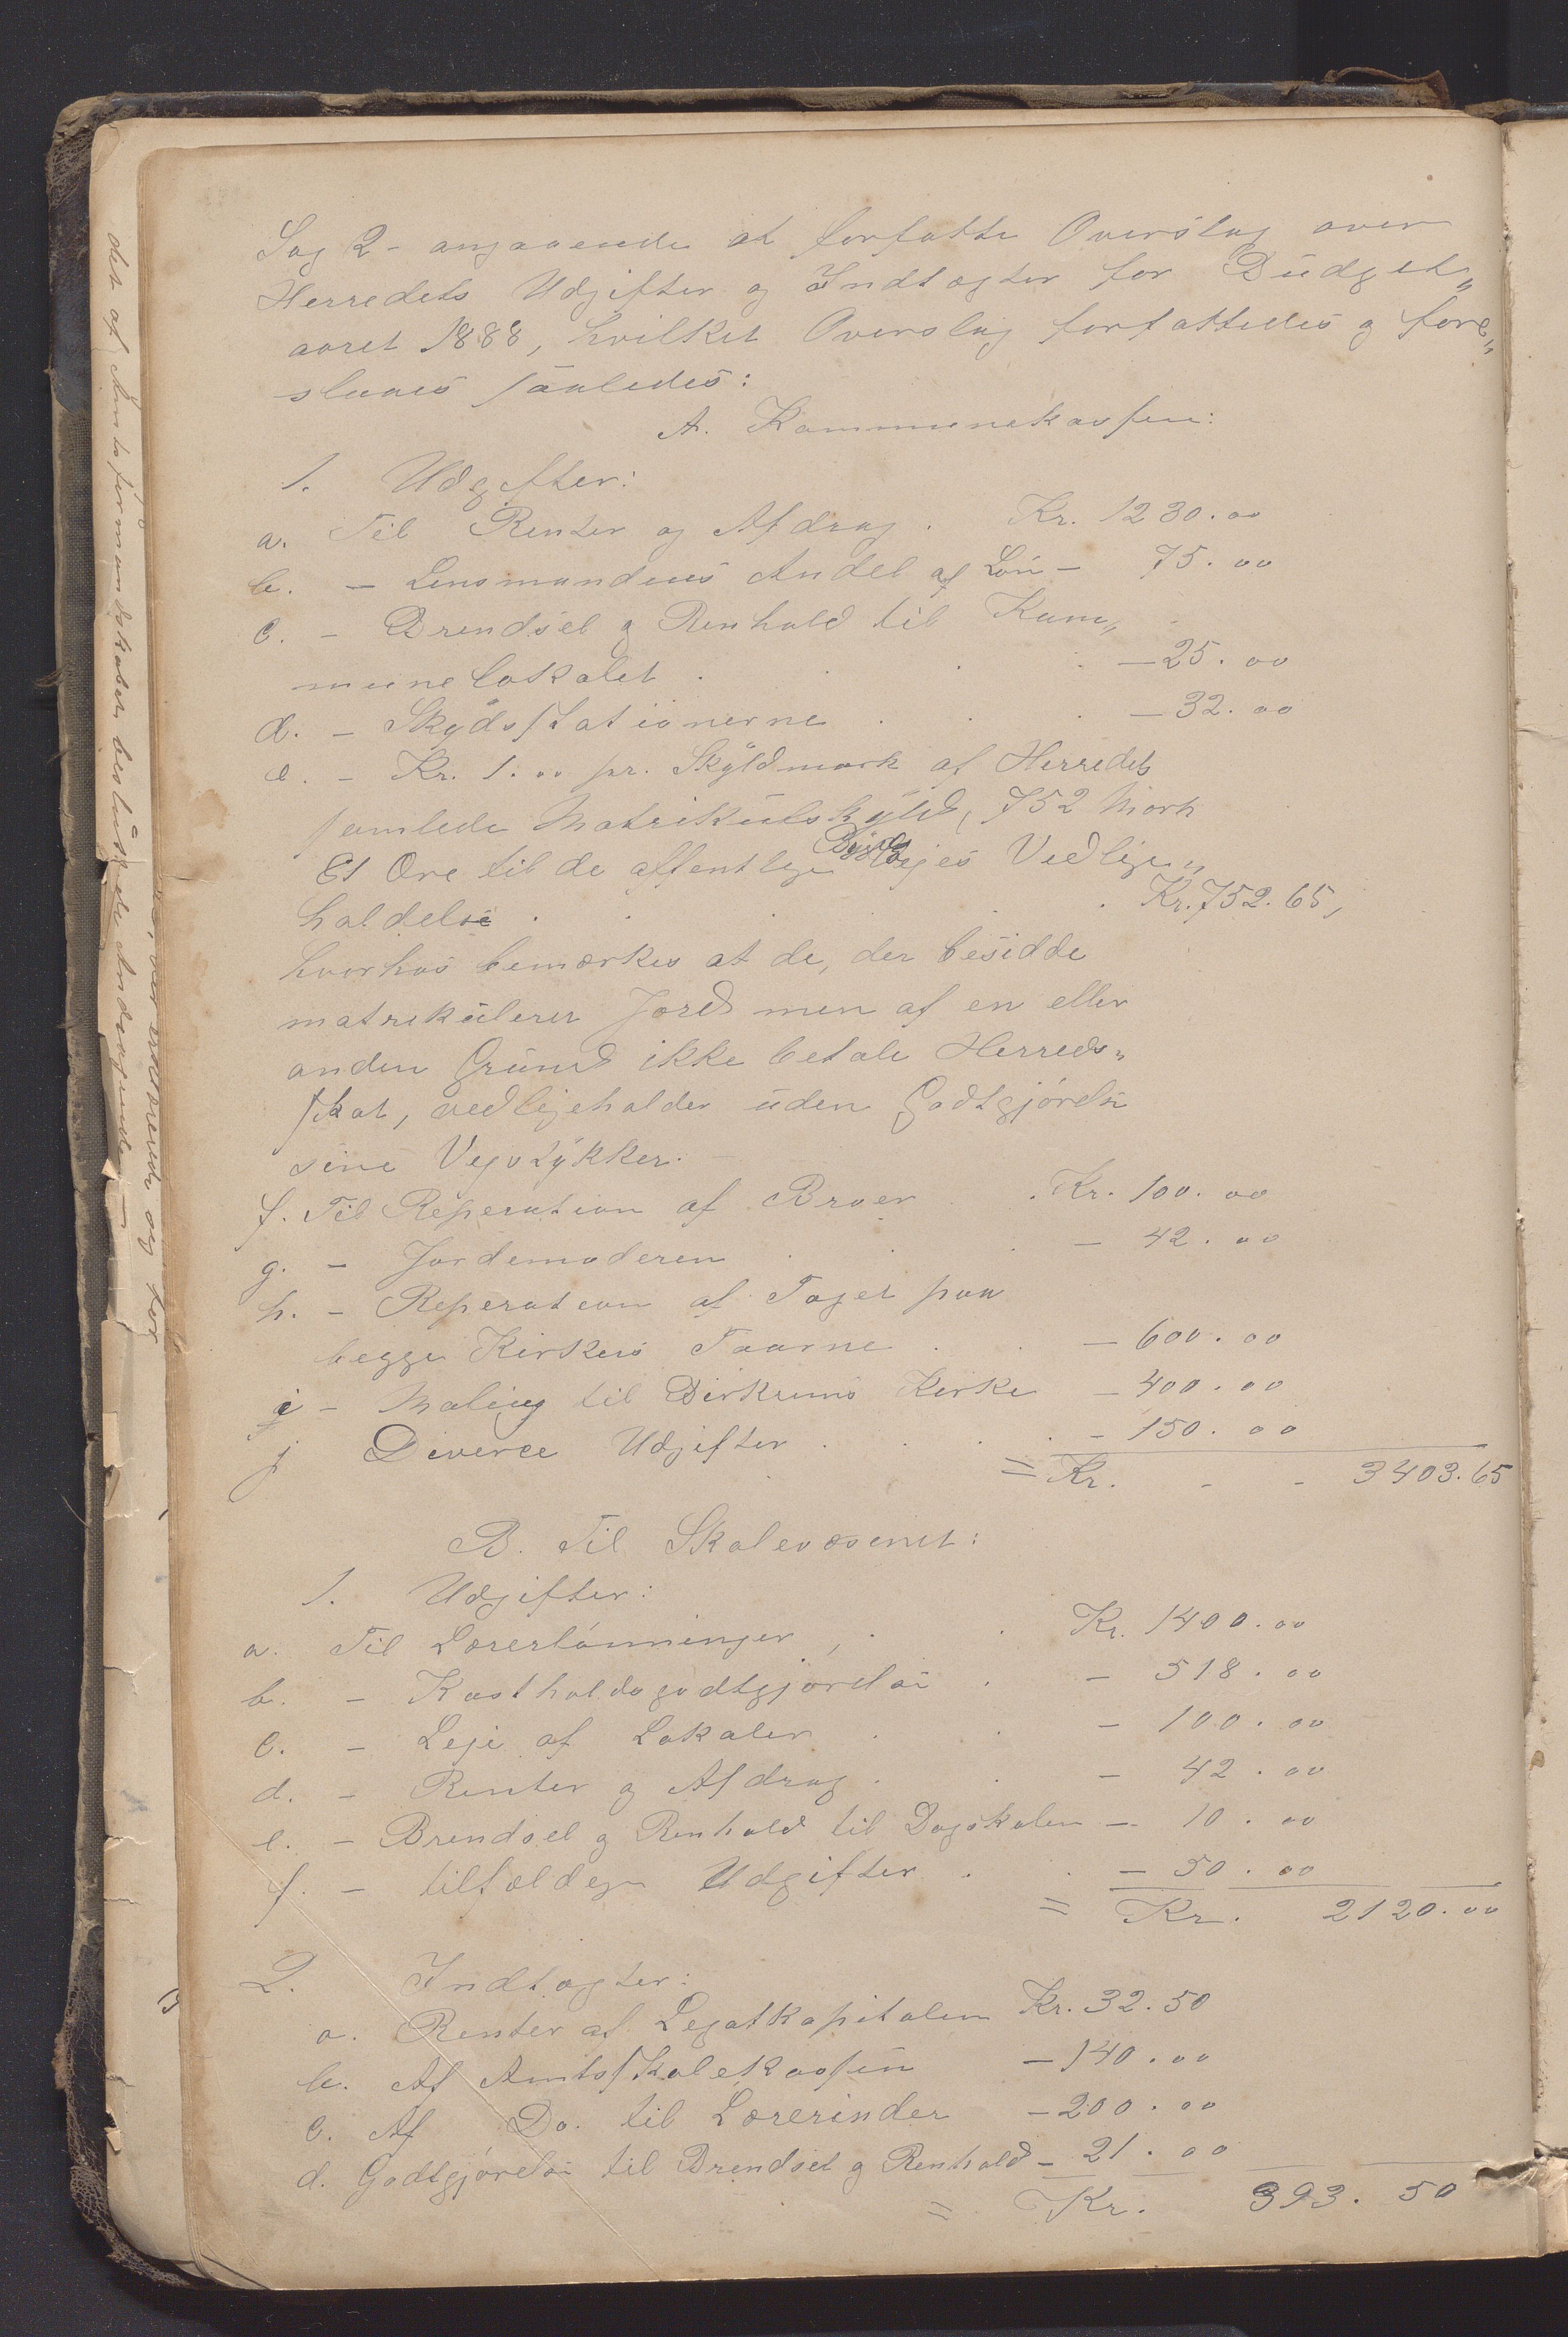 Sag 2 - angaaende at forfatte Overslag over
Herredets Udgifter og Indtægter for Budget„
aaret 1888, hvilket Overslag forfattedes og fore„
sloges saaledes:
A. Kommunekassen:
1. Udgifter:
a. Til Renter og Afdrag . Kr. 1230.00
b. - Lensmandens Andel af Løn - 75.00
c. - Brendsel og Renhold til Kom„
munelokalet . . . . - 25.00
d. - Skydsstationerne . . . - 32.00
e. - Kr. 1.00 pr. Skyldmark af Herredets
samlede Matrikulskyld, 752 Mark
61 Øre til de offentlige Bygdevejes Vedlige„
holdelse . . . . . Kr. 752.65,
hvorhos bemærkes at de, der besidde
matrikuleret Jord men af en eller
anden Grund ikke betale Herreds„
skat, vedligeholder uden Godtgjørelse
sine Vejstykker. -
f. Til Reperation af Broer . Kr. 100.00
g. - Jordemoderen . . . - 42.00
h. - Reperation af Taget paa
begge Kirkers Taarne . . - 600.00
i - Maling til Birkrems Kirke - 400.00
j Diverce Udgifter . . . - 150.00
= Kr. - - 3403.65
B. Til Skolevæsenet:
1. Udgifter:
a. Til Lærerlønninger, . . Kr. 1400.00
b. - Kostholdsgodtgjørelse . - 518.00
c. - Leje af Lokaler . . - 100.00
d. - Renter og Afdrag . . - 42.00
e. - Brendsel og Renhold til Dagskolen - 10.00
f. - tilfældige Udgifter . . - 50.00
= Kr. 2120.00
2. Indtægter:
a. Renter af Legatkapitalen Kr. 32.50
b. Af Amtsskolekassen - 140.00
c. Af Do. til Lærerinder - 200.00
d. Godtgjørelse til Brendsel og Renhold - 21.00
= Kr. 393.50
det af Amtsformandskabet besluttede Andragende -
erklærende og for